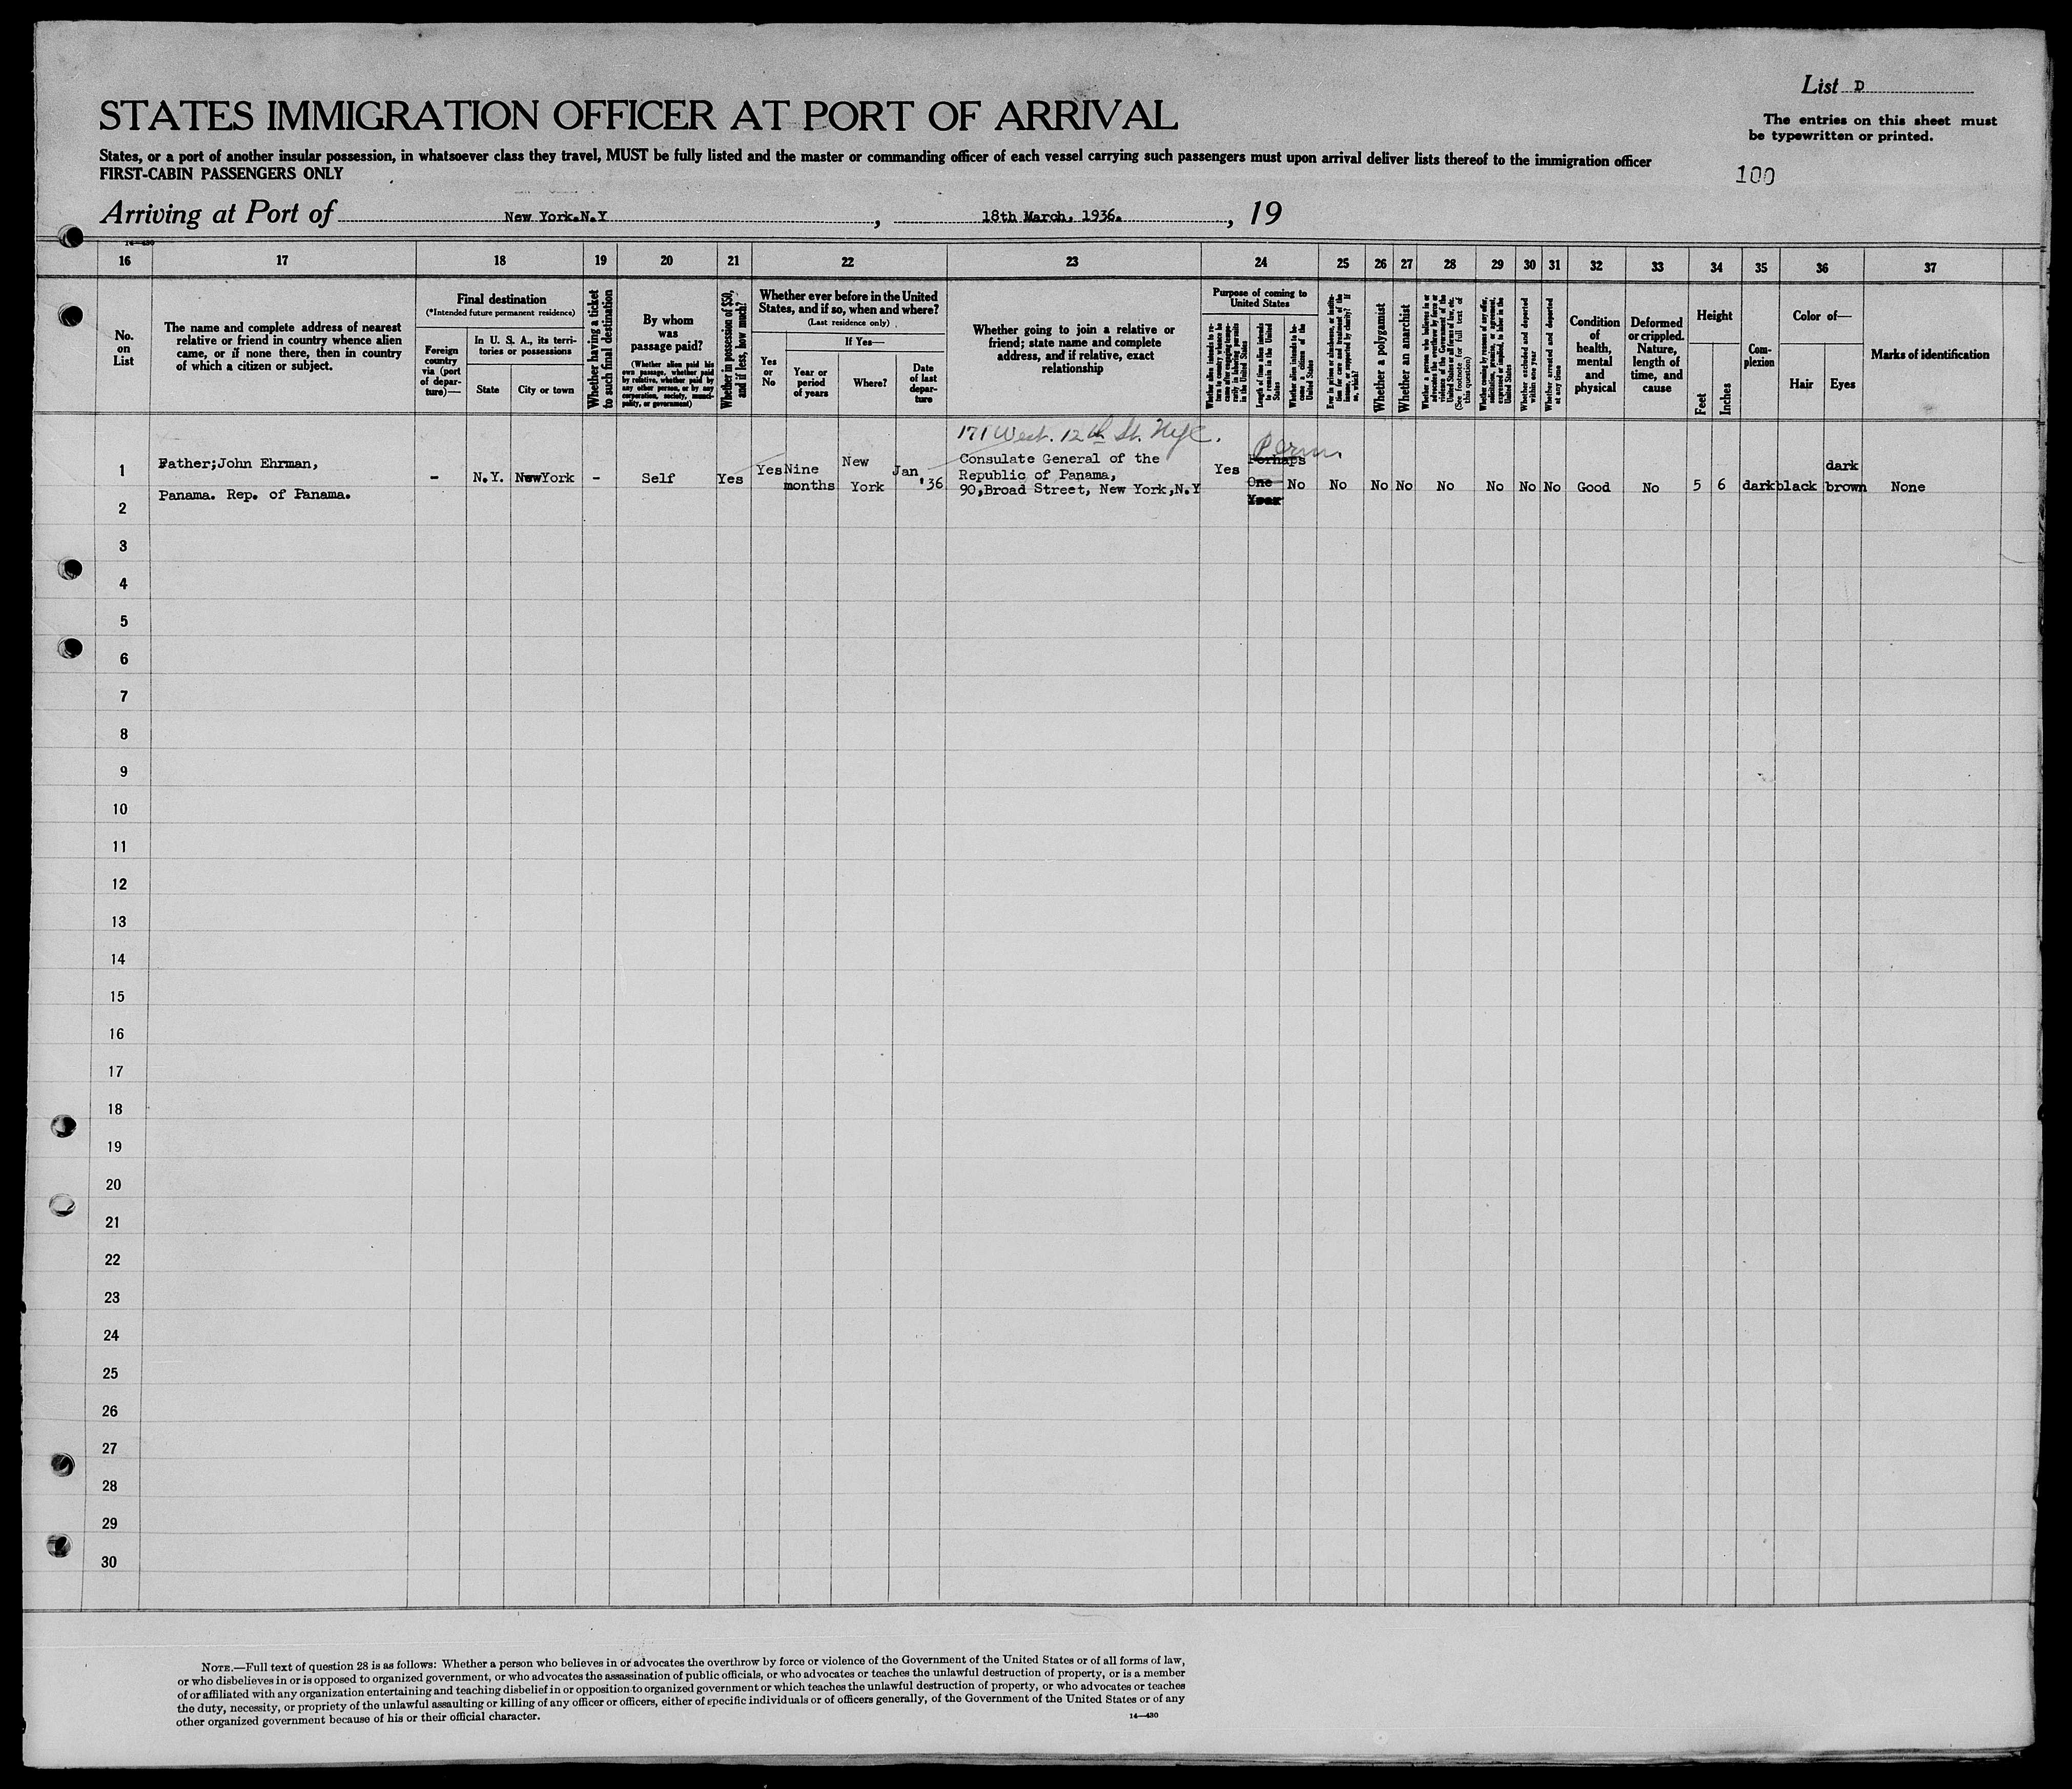 List D
STATES IMMIGRATION OFFICER AT PORT OF ARRIVAL
The entries on this sheet must
be typewritten or printed.
States, or a port of another insular possession, in whatsoever class they travel, MUST be fully listed and the master or commanding officer of each vessel carrying such passengers must upon arrival deliver lists thereof to the immigration officer
FIRST-CABIN PASSENGERS ONLY
100
Arriving at Port of New York.N.Y, 18th March, 1936., 19
14—430
16 17 18 19 20 21 22 23 24 25 26 27 28 29 30 31 32 33 34 35 36 37
No.
on
List
The name and complete address of nearest
relative or friend in country whence alien
came, or if none there, then in country
of which a citizen or subject.
Final destination
(*Intended future permanent residence)
Foreign
country
via (port
of depar-
ture)—
In U. S. A., its terri-
tories or possessions
State
City or town
Whether having a ticket
to such final destination
By whom
was
passage paid?
(Whether alien paid his
own passage, whether paid
by relative, whether paid by
any other person, or by any
corporation, society, munici-
pality, or government)
Whether in possession of $50,
and if less, how much?
Whether ever before in the United
States, and if so, when and where?
(Last residence only)
Yes
or
No
If Yes—
Year or
period
of years
Where?
Date
of last
depar-
ture
Whether going to join a relative or
friend; state name and complete
address, and if relative, exact
relationship
Purpose of coming to
United States
Length of time alien intends
to remain in the United
States
Whether alien intends to be-
come a citizen of the
United States
Whether a polygamist
Whether an anarchist
Whether a person who believes in or
advocates the overthrow by force or
violence of the Government of the
United States or all forms of law, etc.
(See footnote for full text of
this question)
Whether coming by reason of any offer,
solicitation, promise, or agreement,
expressed or implied, to labor in the
United States
Whether excluded and deported
within one year
Whether arrested and deported
at any time
Condition
of
health,
mental
and
physical
Deformed
or crippled.
Nature,
length of
time, and
cause
Height
Feet
Inches
Com-
plexion
Color of—
Hair
Eyes
Marks of identification
171 West. 12th St. Nyc.
1 Father;John Ehrman,
Panama. Rep. of Panama.
- N.Y. NewYork - Self Yes Yes Nine
months
New
York
Jan
'36
Consulate General of the
Republic of Panama,
90,Broad Street, New York,N.Y
Yes
Perm
Perhaps
One
Year
No No No No No No No No Good No 5 6 dark black dark
brown None
2
3
4
5
6
7
8
9
10
11
12
13
14
15
16
17
18
19
20
21
22
23
24
25
26
27
28
29
30
NOTE.—Full text of question 28 is as follows: Whether a person who believes in or advocates the overthrow by force or violence of the Government of the United States or of all forms of law,
or who disbelieves in or is opposed to organized government, or who advocates the assassination of public officials, or who advocates or teaches the unlawful destruction of property, or is a member
of or affiliated with any organization entertaining and teaching disbelief in or opposition to organized government or which teaches the unlawful destruction of property, or who advocates or teaches
the duty, necessity, or propriety of the unlawful assaulting or killing of any officer or officers, either of specific individuals or of officers generally, of the Government of the United States or of any
other organized government because of his or their official character.
14—430